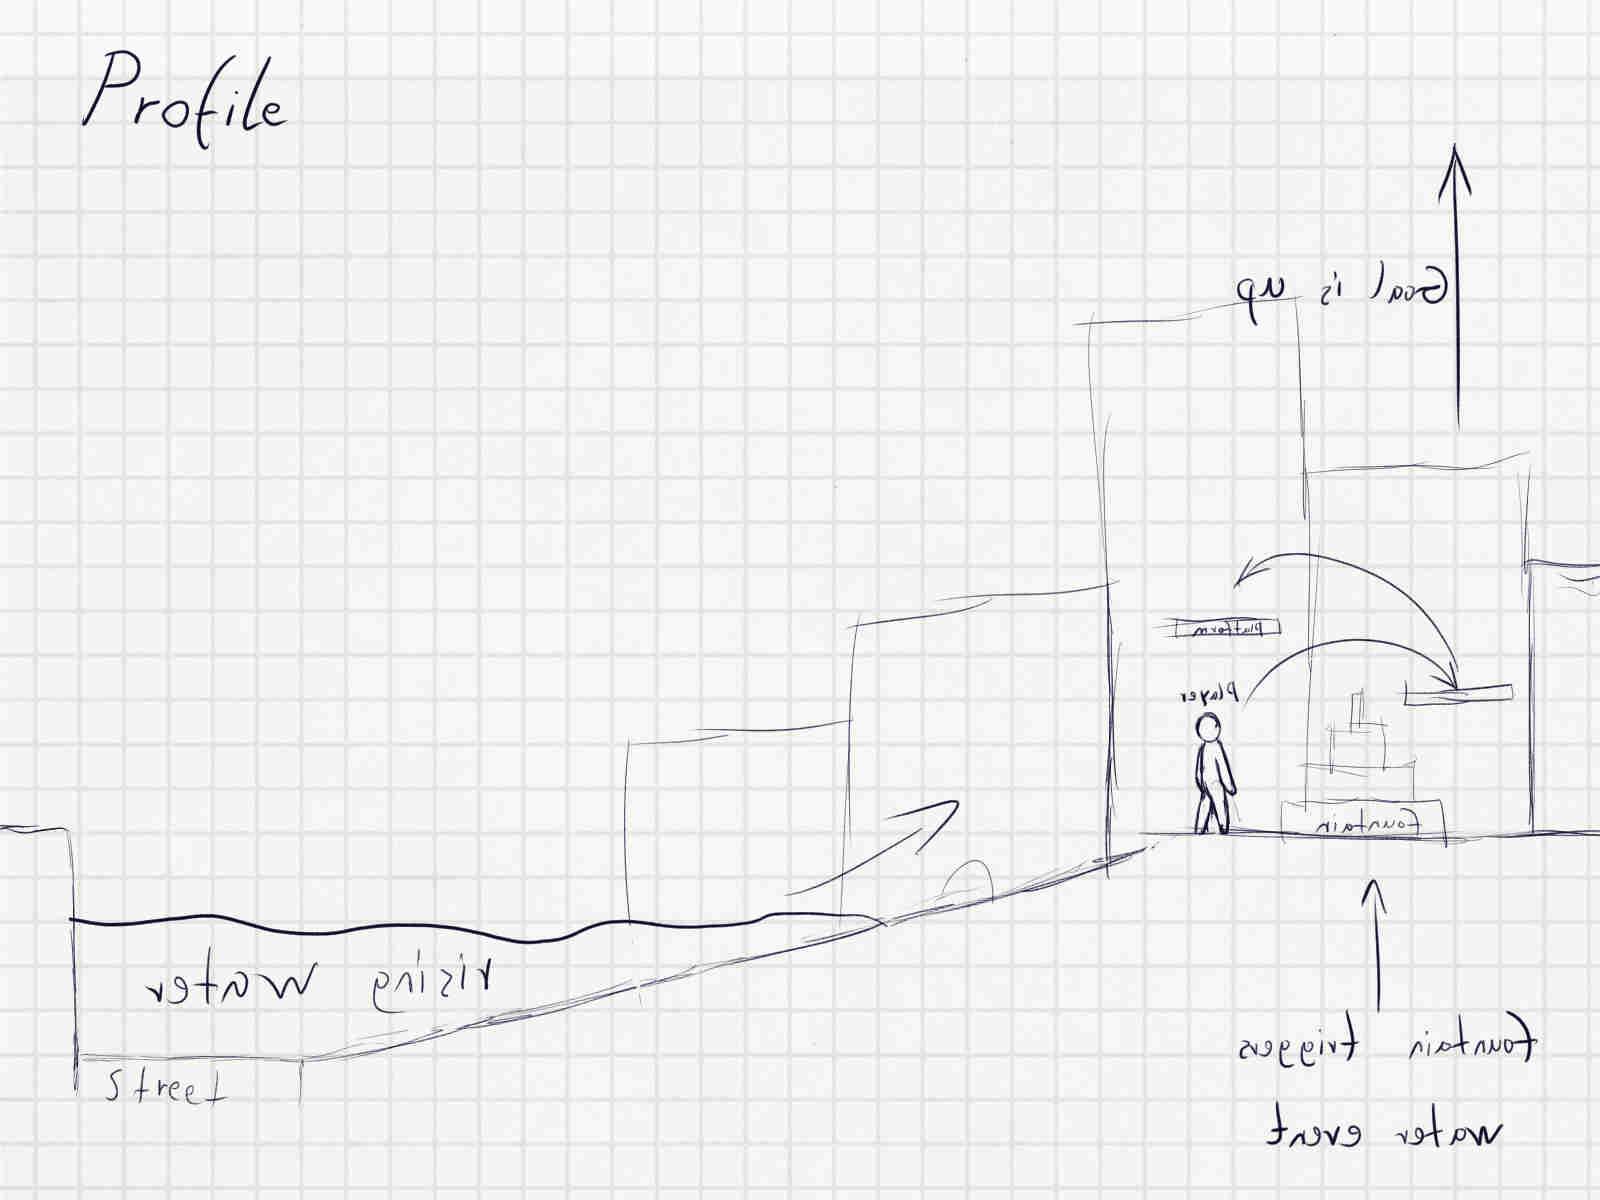 Profile
Goal is up
Platform
Player
Fountain
rising water
Street
Fountain triggers
water event